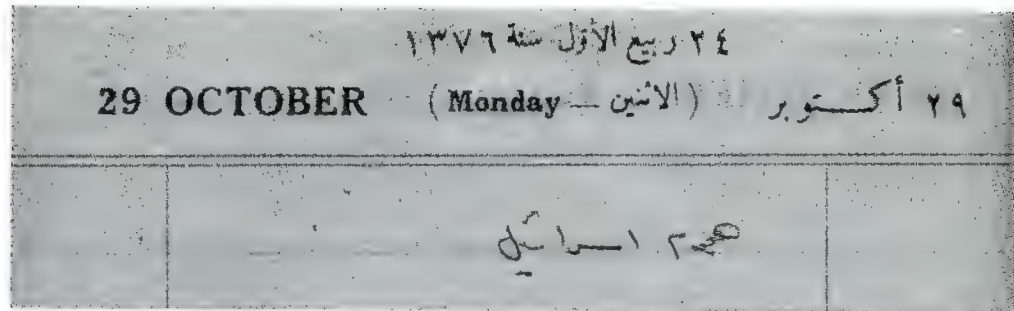 ٢٤ ربيع الأول سنة ١٣٧٦
29 OCTOBER (Monday — الاثنين) ٢٩ أكتوبر
هجوم اسرائيل